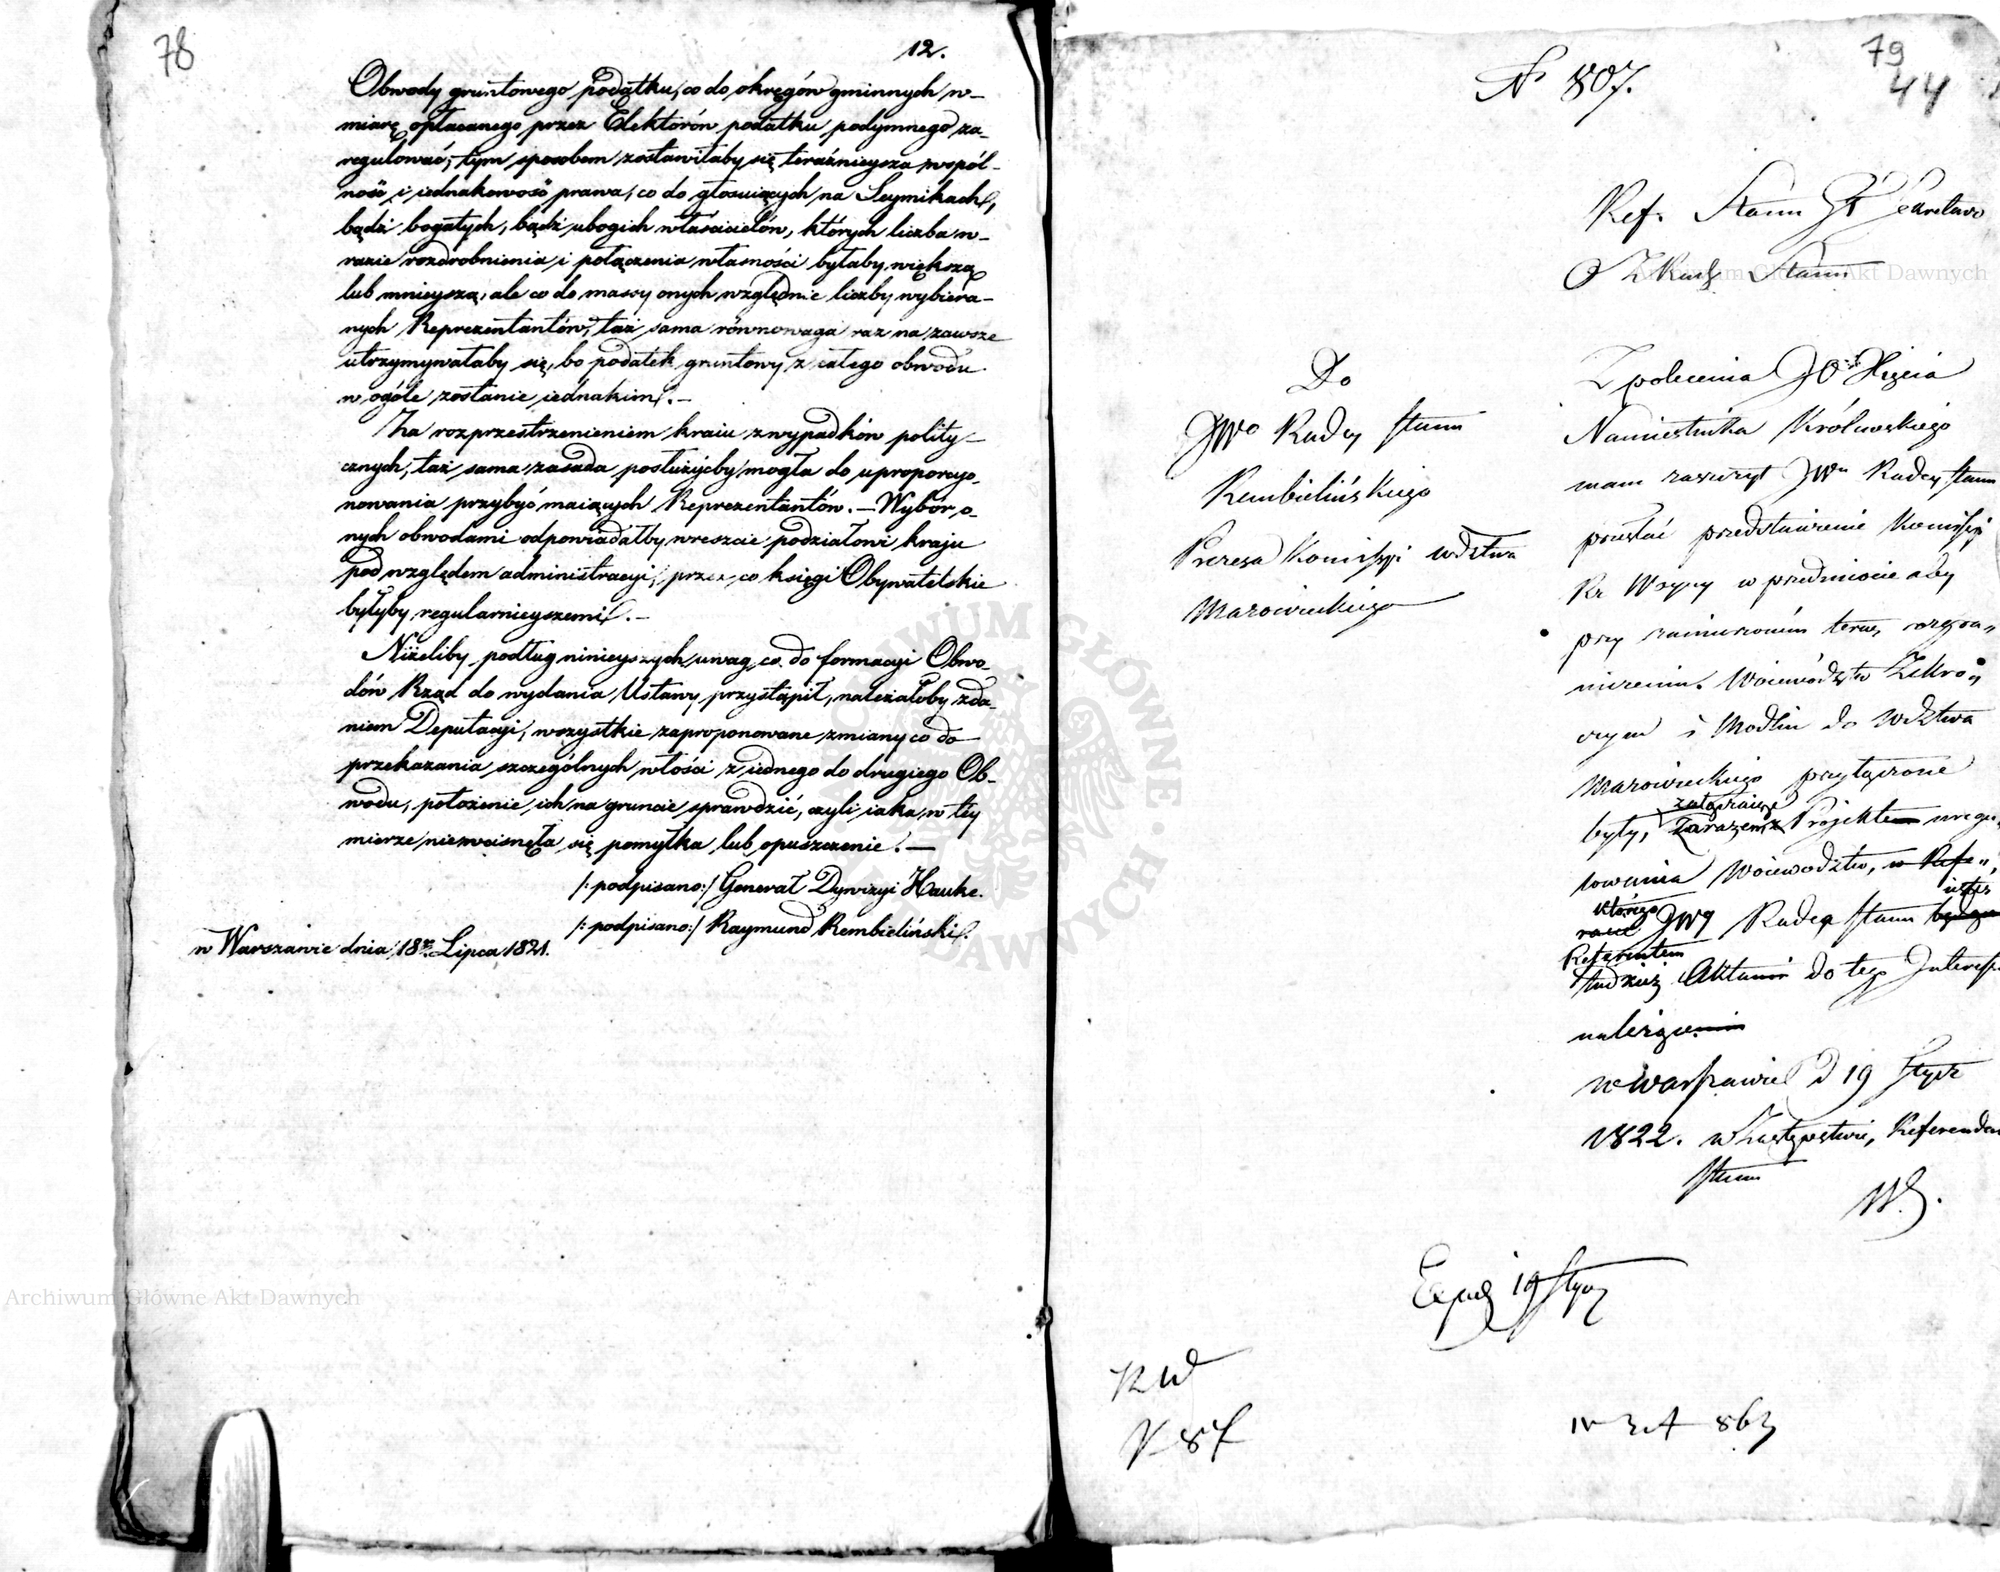 78
12.
Obwody gruntowego podatku, co do okręgów gminnych w
miarę opłacanego przez Elektorów podatku podymnego za-
regulować; tym sposobem zostawiłaby się teraźnieysza wspól-
ność i iednakowość prawa, co do głosuiących na Seymikach,
bądź bogatych, bądź ubogich właścicielów, których liczba w
razie rozdrobnienia i połączenia własności byłaby większą
lub mnieyszą, ale co do massy onych względnie liczby wybiera-
nych Reprezentantów, taż sama równowaga raz na zawsze
utrzymywałaby się, bo podatek gruntowy z całego obwodu
w ogóle zostanie iednakim.—
Za rozprzestrzenieniem kraiu z wypadków polity-
cznych, taż sama zasada posłużyćby mogła do uproporcyo-
nowania przybyć maiących Reprezentantów.— Wybór o-
nych obwodami odpowiadałby wreszcie podziałowi kraju
pod względem administracyi, przez co księgi Obywatelskie
byłyby regularnieyszemi.—
Niżeliby podług ninieyszych uwag, co do formacyi Obwo-
dów Rząd do wydania Ustawy przystąpił, należałoby zda-
niem Deputacyi, wszystkie zaproponowane zmiany co do
przekazania szczególnych włości z iednego do drugiego Ob-
wodu, położenie ich na gruncie sprawdzić, czyli iaka w tey
mierze niewcisnęła się pomyłka lub opuszczenie.—
/:podpisano:/ Generał Dywizyi Hauke.
/:podpisano:/ Raymund Rembieliński.
w Warszawie dnia 18. Lipca 1821.
79
44
N 807.
Ref. Stanu
Stanu
Do
JWo Radcy Stanu
Rembielińskiego
Prezesa Komissyi wdztwa
Mazowieckiego
Z polecenia JO Xięcia
Namiestnika Królewskiego
mam zaszczyt JWu Radcy Stanu
przesłać przedstawienie Komissyi
w przedmiocie aby
przy
Woiewództw Zakro„
czym i Modlin do Wdztwa
Mazowieckiego przyłączone
były, Zarazem Projektem uregu„
lowania Woiewództw, w Refe„
którego
JWy Radca Stanu
Referentem
tudzież Aktami do tego Interess
należącemi
w Warszawie d 19 Stycz
1822. w Zastępstwie, Referendarz
Stanu
Exped 19 Stycz
KW
863
Archiwum Główne Akt Dawnych
Archiwum Główne Akt Dawnych
ARCHIWUM GŁÓWNE AKT DAWNYCH